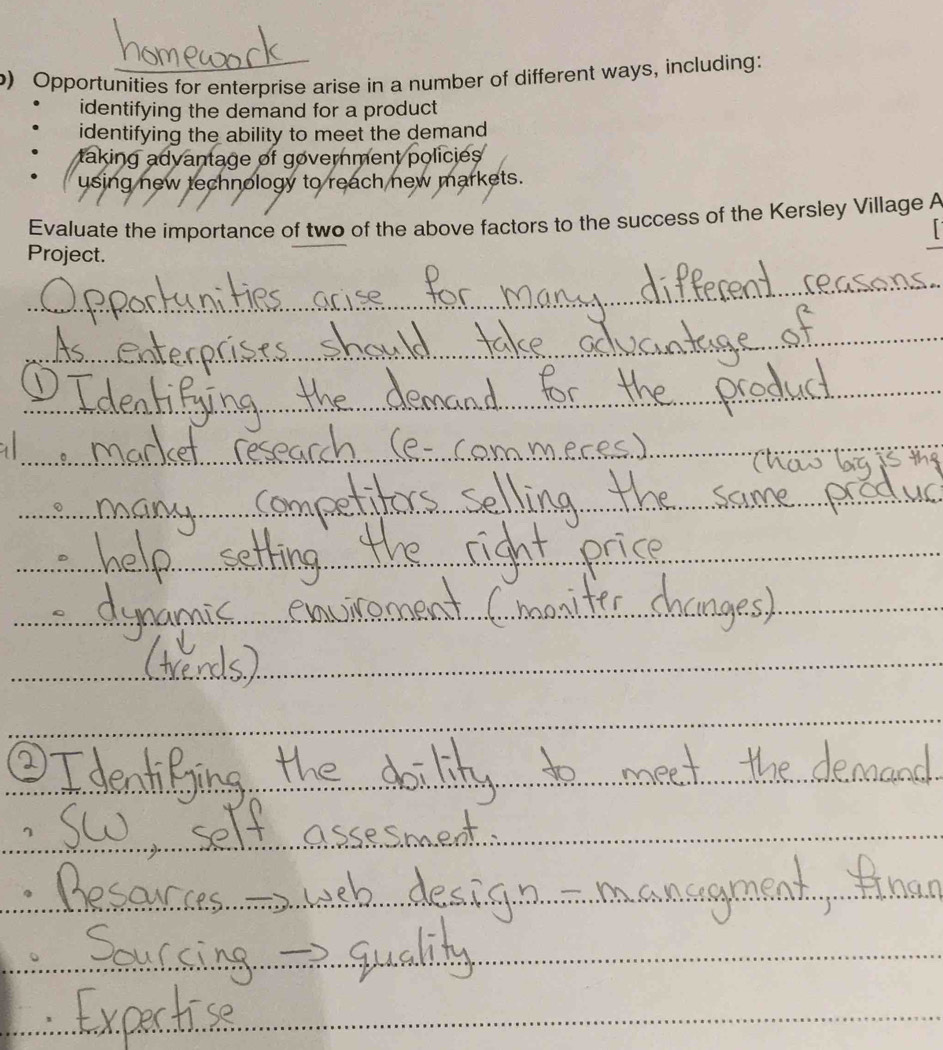 homework
b) Opportunities for enterprise arise in a number of different ways, including:
• identifying the demand for a product
• identifying the ability to meet the demand
• taking advantage of government policies
• using new technology to reach new markets.
Evaluate the importance of two of the above factors to the success of the Kersley Village A
[
Project.
Opportunities arise for many different reasons.
As enterprises should take advantage of
① Identifying the demand for the product
• market research (e-commeres)
(how big is the
• many competitors selling the same produc
• help setting the right price
• dynamic enviroment (moniter changes)
(trends)
② Identifying the ability to meet the demand
• SW, self assesment.
• Resources → web design - managment, finan
• Sourcing → quality
• Expertise